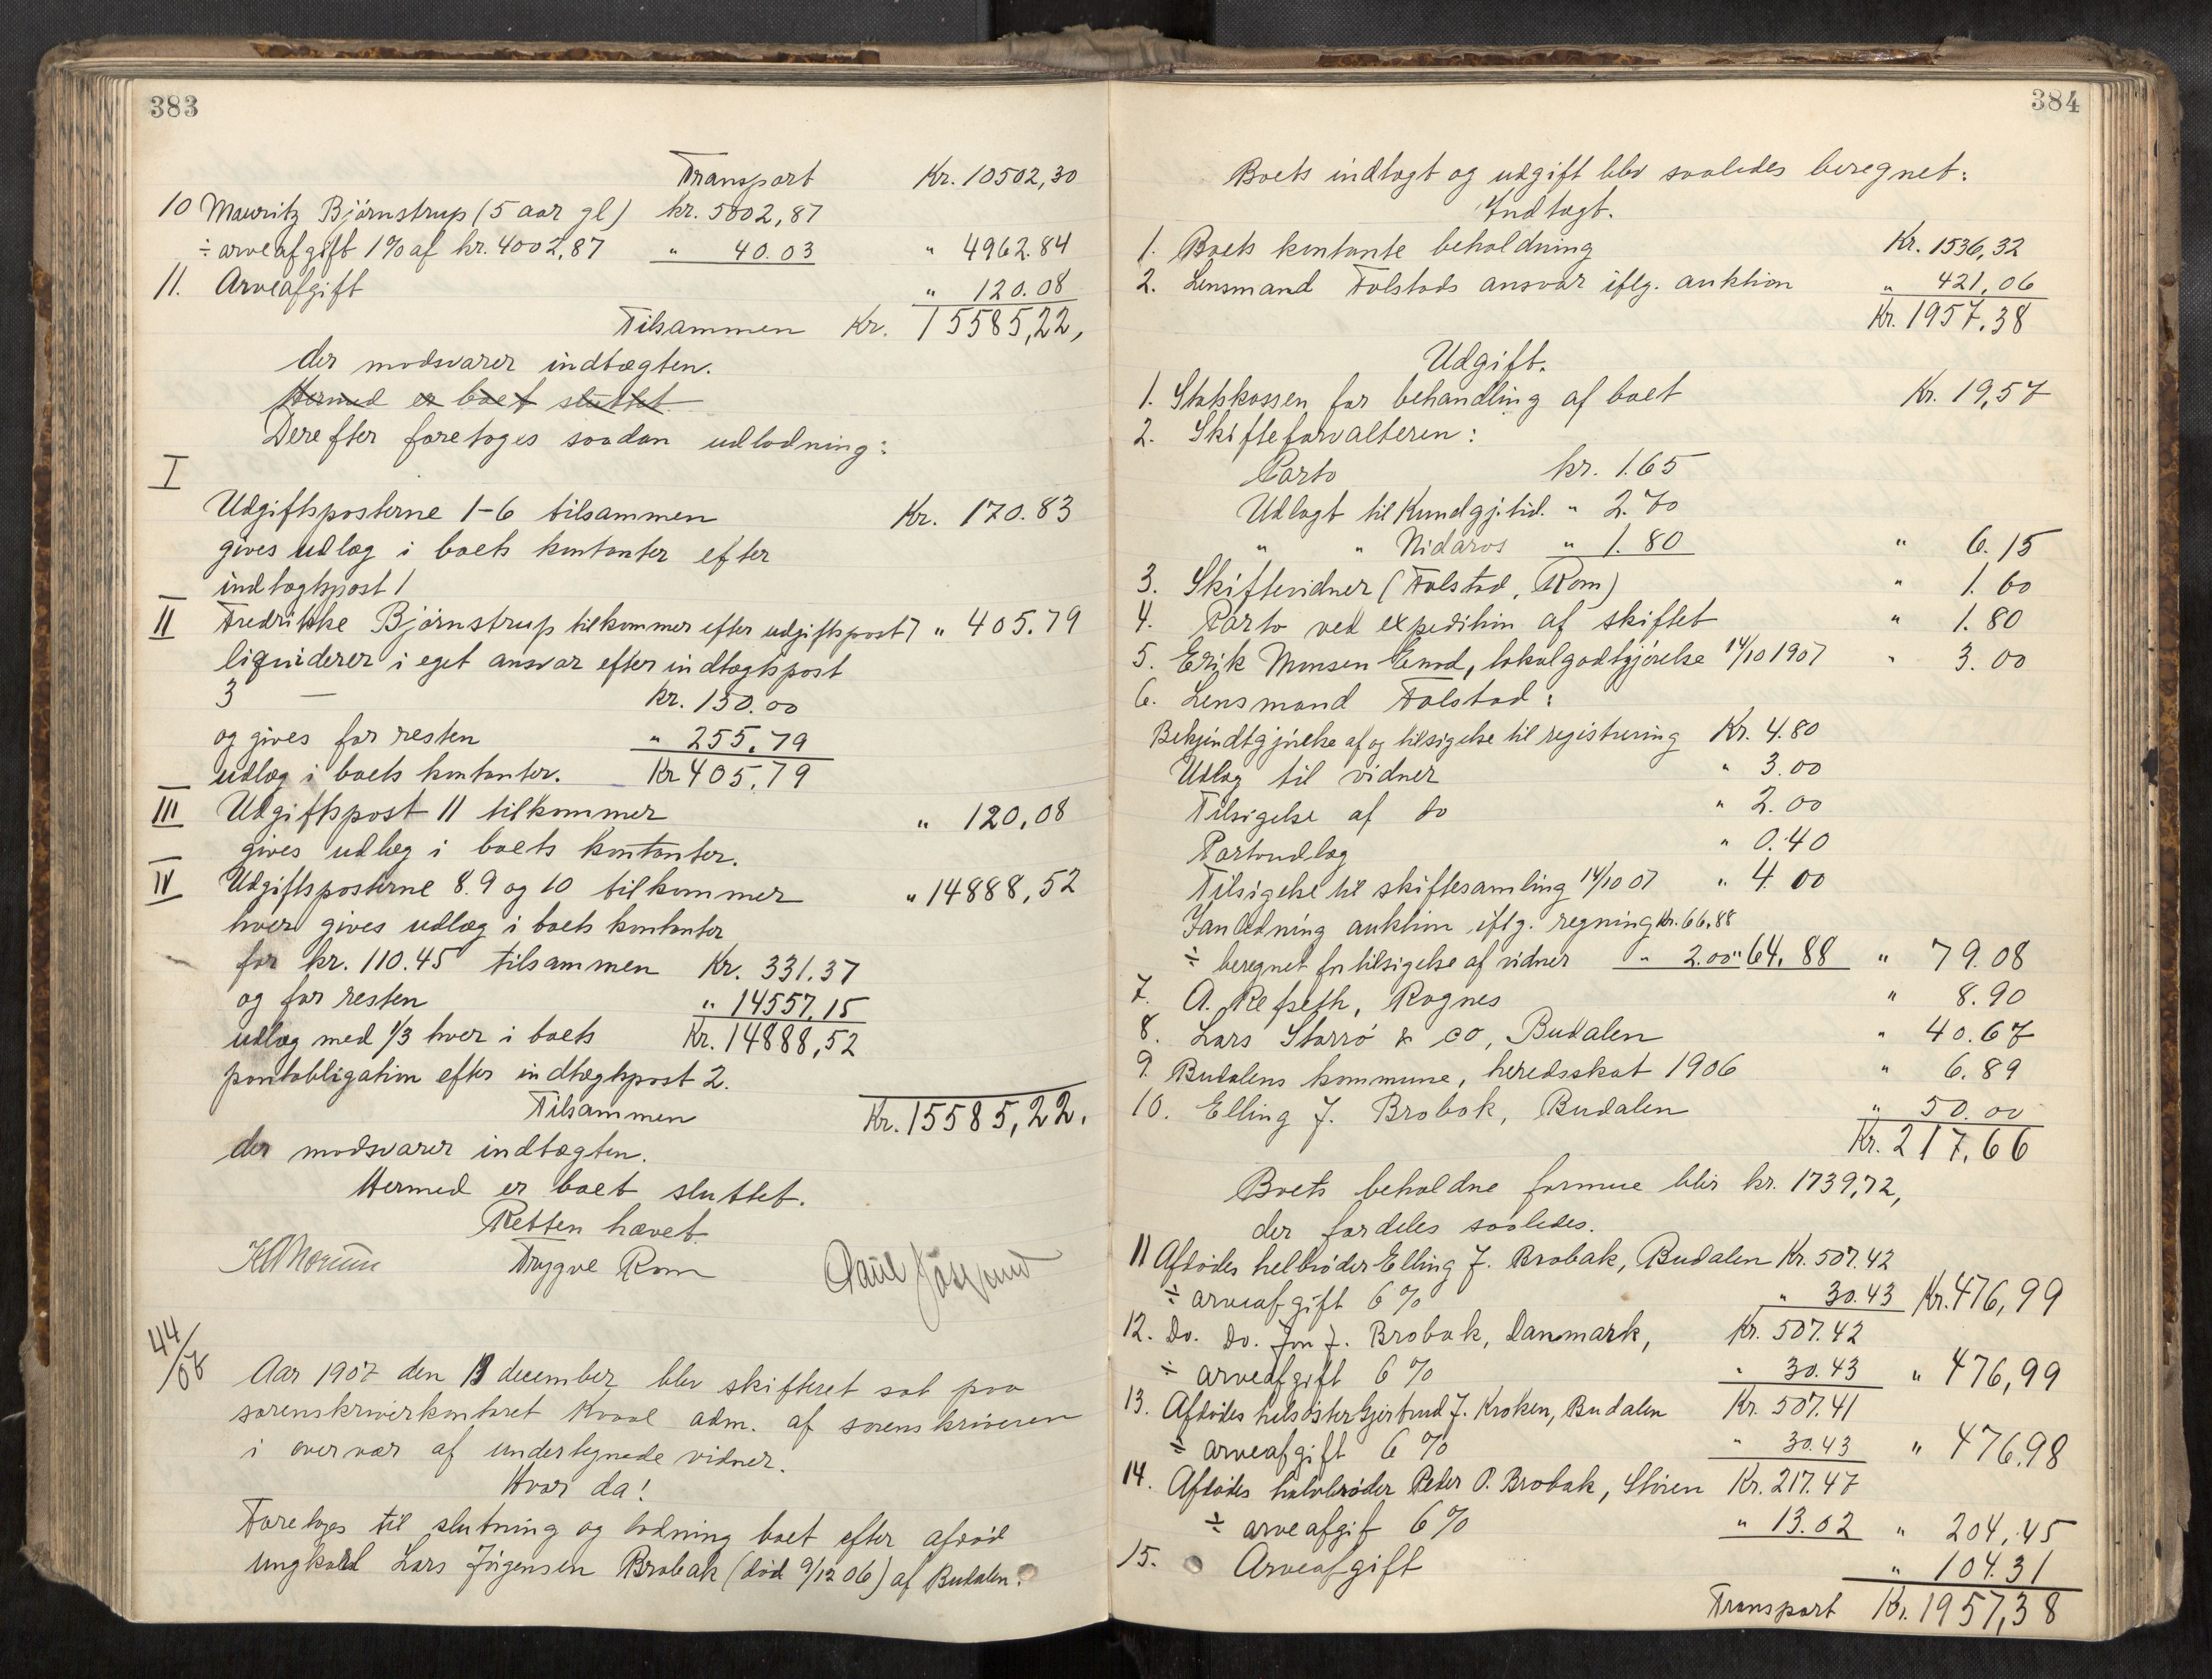 383
Transport Kr. 10502,30
10 Mauritz Bjørnstrup (5 aar gl) kr. 5002,87
÷ arveafgift 1% af kr. 4002,87 " 40.03 " 4962.84
11. Arveafgift " 120.08
Tilsammen Kr. 15585,22,
der modsvarer indtægten.
Hermed er boet sluttet
Derefter foretoges saadan udlodning:
I
Udgiftsposterne 1-6 tilsammen Kr. 170.83
gives udlæg i boets kontanter efter
indtægtspost 1
II Fredrikke Bjørnstrup tilkommer efter udgiftspost 7 " 405.79
liquiderer i eget ansvar efter indtægtspost
3 — kr. 150.00
og gives for resten " 255.79
udlæg i boets kontanter. Kr 405.79
III Udgiftspost 11 tilkommer " 120,08
gives udlæg i boets kontanter.
IV Udgiftsposterne 8. 9 og 10 tilkommer " 14888,52
hver gives udlæg i boets kontanter
for kr. 110.45 tilsammen Kr. 331.37
og for resten " 14557.15
udlæg med 1/3 hver i boets Kr. 14888,52
pantobligation efter indtægtspost 2.
Tilsammen Kr. 15585,22.
der modsvarer indtægten.
Hermed er boet sluttet.
Retten hævet.
Trygve Rom
44/08
Aar 1907 den 13 december blev skifteret sat paa
sorenskriverkontoret Kvaal adm. af sorenskriveren
i overvær af undertegnede vidner.
Hvor da!
Foretoges til slutning og lodning boet efter afdød
ungkarl Lars Jørgensen Brobak (død 9/12 06) af Budalen.
384
Boets indtægt og udgift blev saaledes beregnet:
Indtægt.
1. Boets kontante beholdning Kr. 1536,32
2. Lensmand Folstads ansvar iflg. auktion " 421,06
Kr. 1957.38
Udgift.
1. Statskassen for behandling af boet Kr. 19,57
2. Skifteforvalteren:
Porto kr. 1.65
Udlagt til Kundgj.tid. " 2.70
" " Nidaros " 1.80 " 6.15
3. Skiftevidner (Folstad, Rom) " 1.60
4. Porto ved expedition af skiftet " 1.80
5. Erik Monsen Enod, lokalgodtgjørelse 14/10 1907 " 3.00
6. Lensmand Folstad:
Bekjendtgjørelse af og tilsigelse til registrering Kr. 4.80
Udlæg til vidner " 3.00
Tilsigelse af do " 2.00
Portoudlæg " 0.40
Tilsigelse til skiftesamling 14/10 07 " 4.00
I anledning auktion iflg. regning kr. 66.88
÷ beregnet for tilsigelse af vidner " 2.00 " 64.88 " 79.08
7. A. Refseth, Rognes " 8.90
8. Lars Storrø & co, Budalen " 40.67
9. Budalens kommune, heredsskat 1906 " 6.89
10. Elling J. Brobak, Budalen " 50.00
Kr. 217.66
Boets beholdne formue blir kr. 1739,72,
der fordeles saaledes.
11 Afdødes helbrøder Elling J. Brobak, Budalen Kr. 507.42
÷ arveafgift 6% " 30.43 Kr. 476,99
12. Do. Do. Jon J. Brobak, Danmark, Kr. 507.42
÷ arveafgift 6% " 30.43 " 476,99
13. Afdødes helsøster Gjertrud J. Kroken, Budalen Kr. 507.41
÷ arveafgift 6% " 30.43 " 476.98
14. Afdødes halvbrøder Peder O. Brobak, Støren Kr. 217.47
÷ arveafgif 6% " 13.02 " 204,45
15. Arveafgift " 104.31
Transport Kr. 1957,38